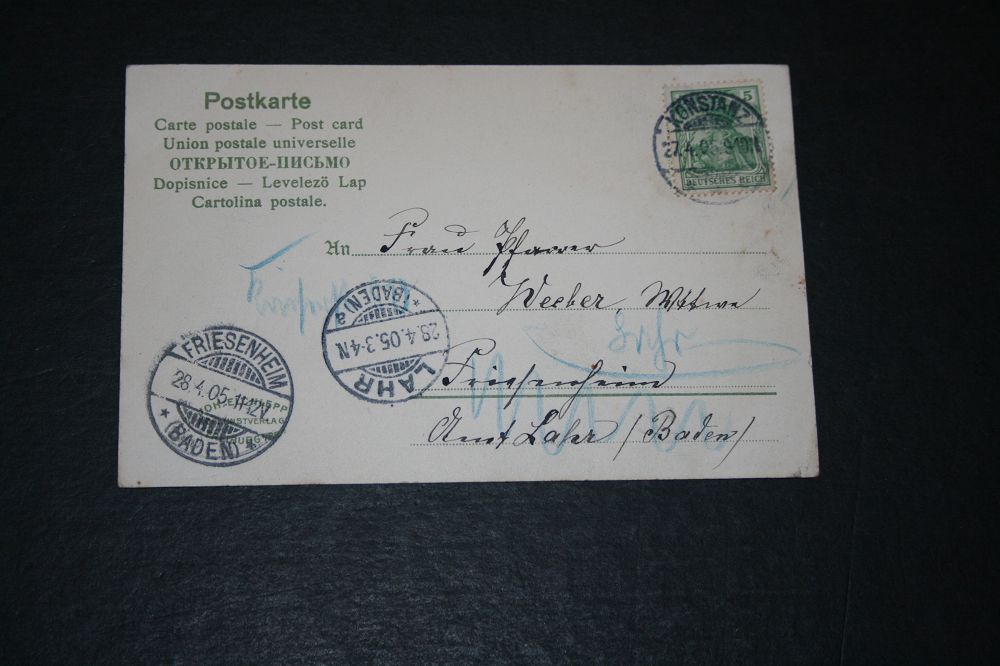 Postkarte
Carte postale — Post card
Union postale universelle
ОТКРЫТОЕ-ПИСЬМО
Dopisnice — Levelezö Lap
Cartolina postale.
5
DEUTSCHES REICH
KONSTANZ
27.4.05
An Frau Pfarrer
Weeber, Witwe
Friesenheim
Amt Lahr (Baden)
Lahr
LAHR
28.4.05.3-4N
* (BADEN) a
FRIESENHEIM
28.4.05.11-12V
* (BADEN) *